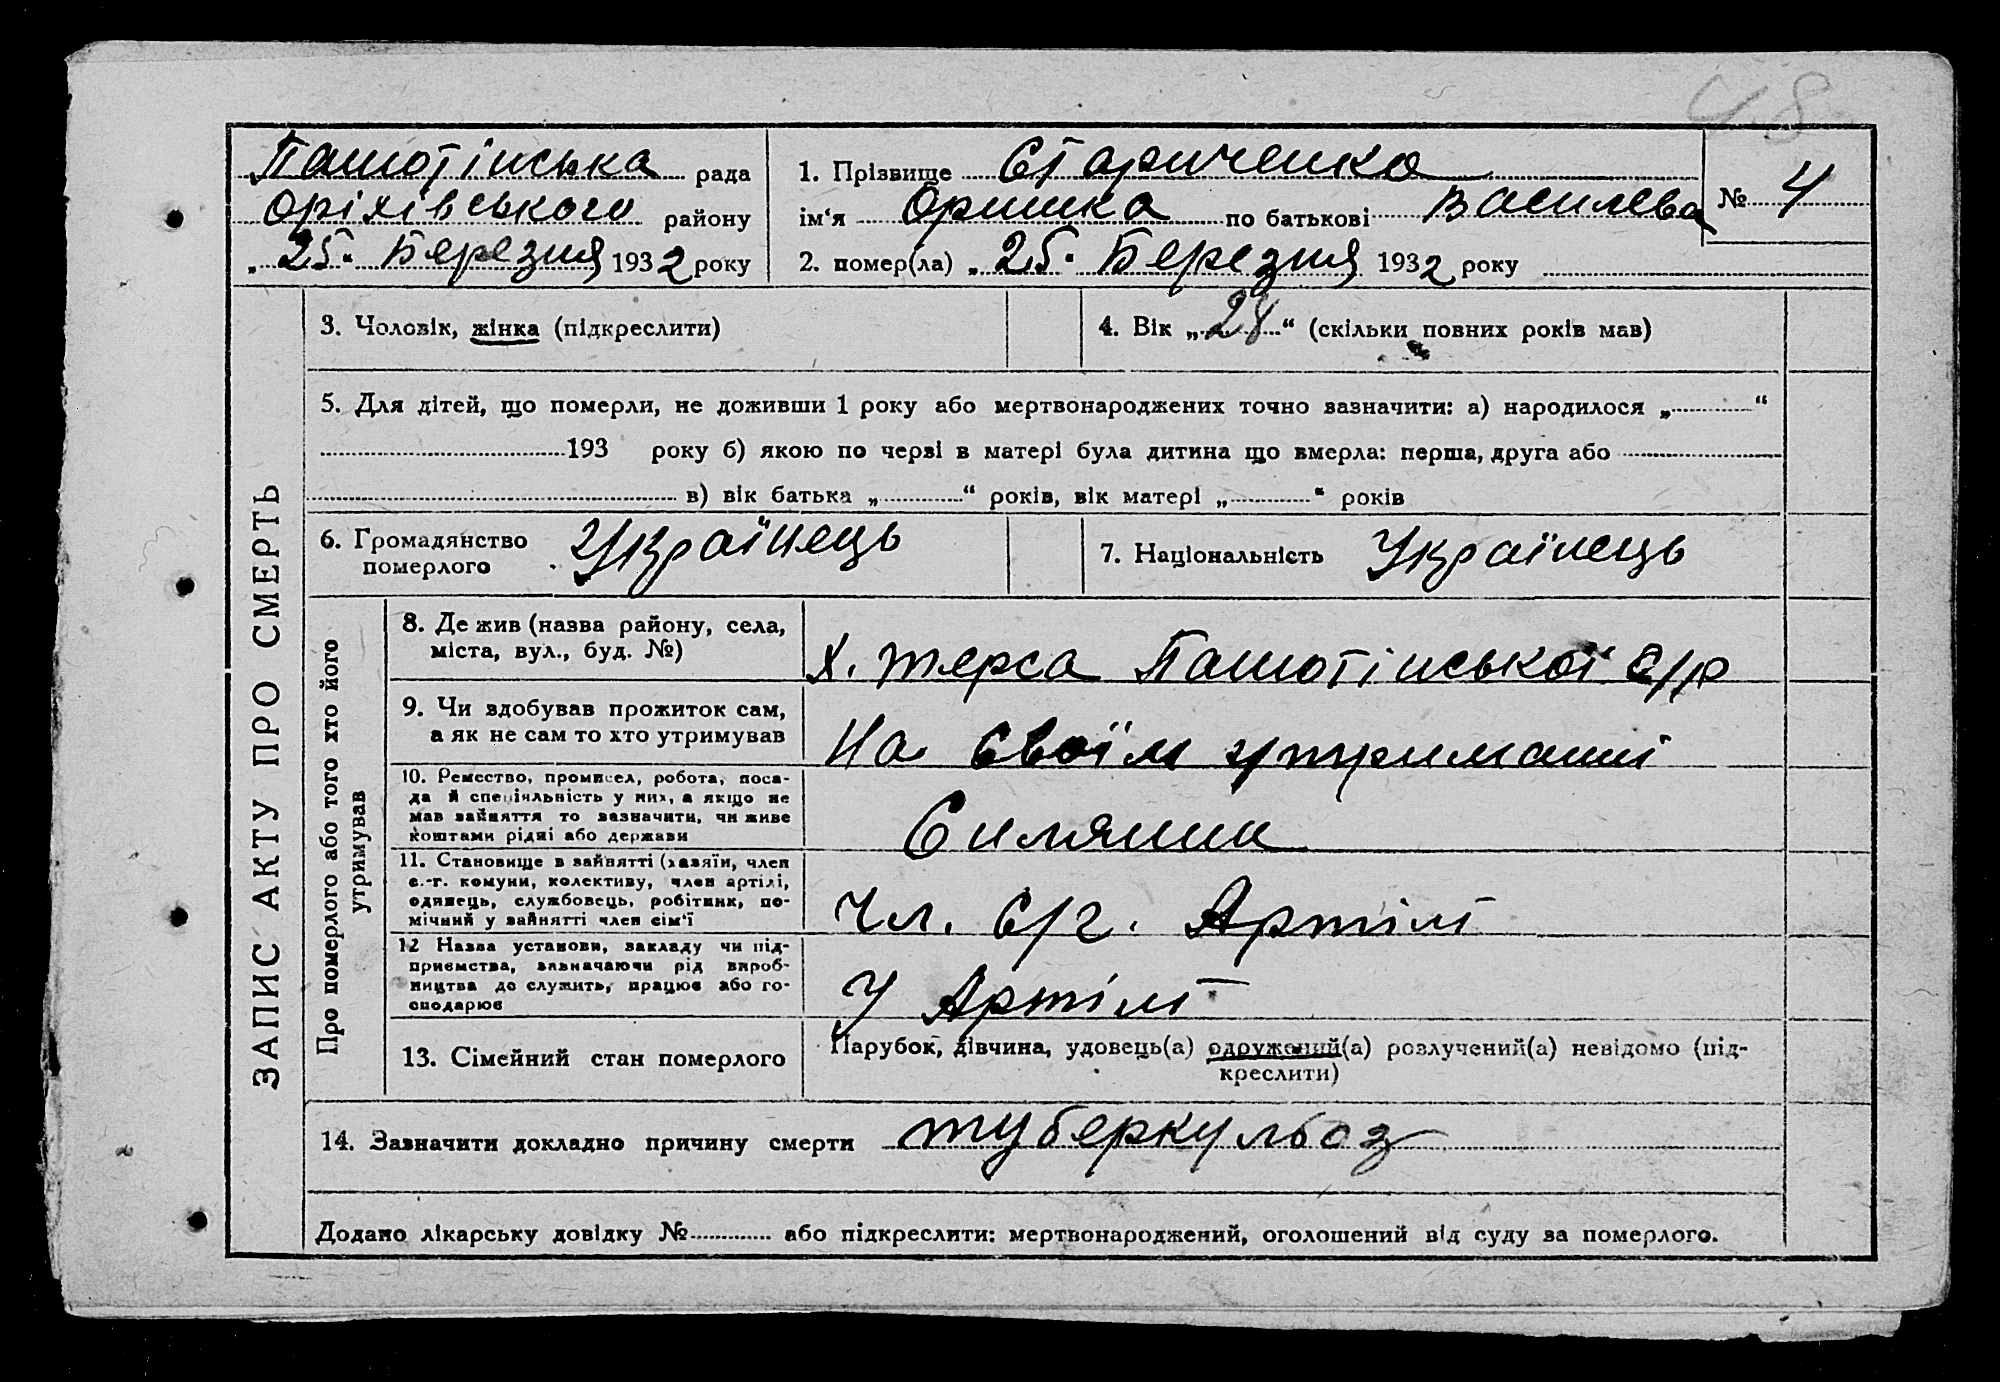 48
Пашотінська рада
Оріхівського району
„25“ Березня 1932 року
1. Прізвище Стариченко
ім‘я Оришка по батькові Василева
№ 4
2. помер(ла) „25“ Березня 1932 року
ЗАПИС АКТУ ПРО СМЕРТЬ
3. Чоловік, жінка (підкреслити)
4. Вік „28“ (скільки повних років мав)
5. Для дітей, що померли, не доживши 1 року або мертвонароджених точно зазначити: а) народилося „ “
193 року б) якою по черві в матері була дитина що вмерла: перша, друга або
в) вік батька „ “ років, вік матері „ “ років
6. Громадянство
померлого Українець
7. Національність Українець
Про померлого або того хто його
утримував
8. Де жив (назва району, села,
міста, вул., буд. №)
х. терса Пашотінської с/р
9. Чи здобував прожиток сам,
а як не сам то хто утримував
На своїм утриманні
10. Ремество, промисел, робота, поса-
да й спеціяльність у них, а якщо не
мав зайняття то зазначити, чи живе
коштами рідні або держави
Силянин
11. Становище в зайнятті (хазяїн, член
с.-г. комуни, колективу, член артілі,
одинець, службовець, робітник, по-
мічний у зайнятті член сім‘ї
Чл. с/г. Артілі
12 Назва установи, закладу чи під-
приємства, зазначаючи рід вироб-
ництва де служить, працює або го-
сподарює
У Артілі
13. Сімейний стан померлого
Парубок, дівчина, удовець(а) одружений(а) розлучений(а) невідомо (під-
креслити)
14. Зазначити докладно причину смерти туберкульоз
Додано лікарську довідку № або підкреслити: мертвонароджений, оголошений від суду за померлого.